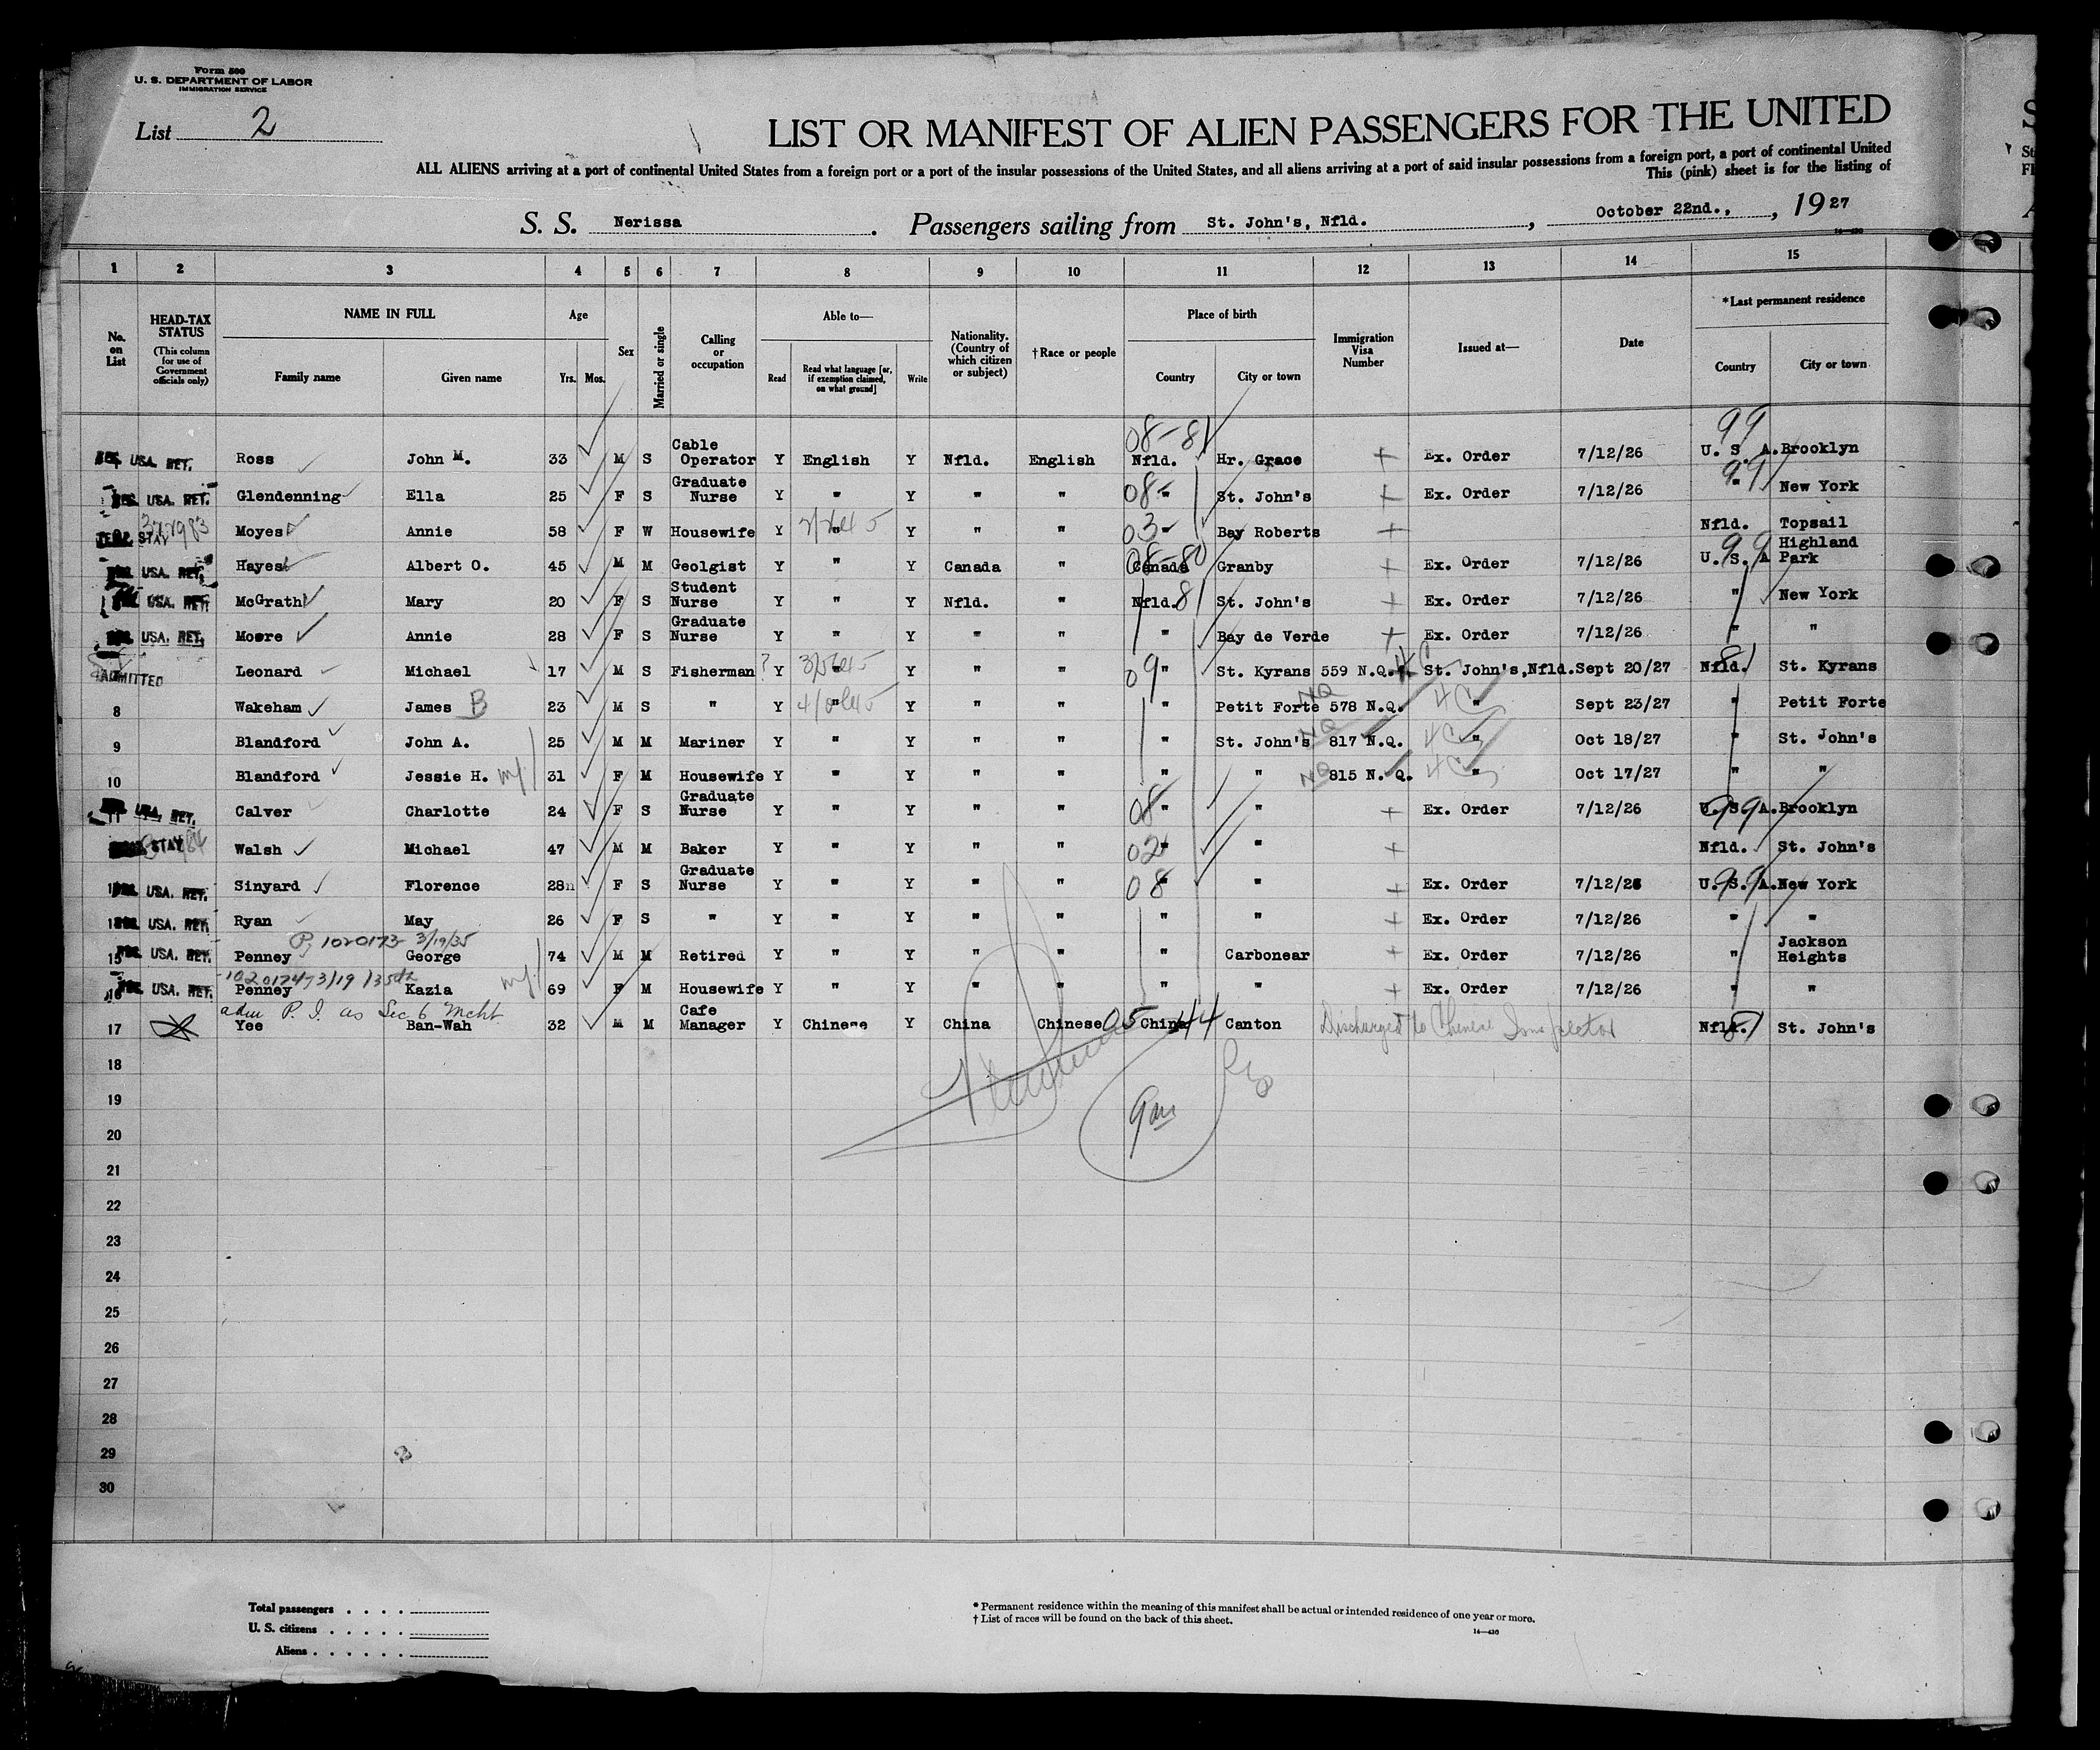 Form 500
U. S. DEPARTMENT OF LABOR
IMMIGRATION SERVICE
List 2
LIST OR MANIFEST OF ALIEN PASSENGERS FOR THE UNITED
ALL ALIENS arriving at a port of continental United States from a foreign port or a port of the insular possessions of the United States, and all aliens arriving at a port of said insular possessions from a foreign port, a port of continental United
This (pink) sheet is for the listing of
S. S. Nerissa. Passengers sailing from St. John's, Nfld., October 22nd., 1927
1 2 3 4 5 6 7 8 9 10 11 12 13 14 15
No. on List
HEAD-TAX STATUS (This column for use of Government officials only)
NAME IN FULL Family name Given name
Age Yrs. Mos.
Sex
Married or single
Calling or occupation
Able to— Read Read what language [or, if exemption claimed, on what ground] Write
Nationality. (Country of which citizen or subject)
†Race or people
Place of birth Country City or town
Immigration Visa Number
Issued at—
Date
*Last permanent residence Country City or town
08-81 99
USA. RET. Ross John M. 33 M S Cable Operator Y English Y Nfld. English Nfld. Hr. Grace + Ex. Order 7/12/26 U. S A. Brooklyn
USA. RET. Glendenning Ella 25 F S Graduate Nurse Y " Y " " 08- " St. John's + Ex. Order 7/12/26 99 " New York
TEMP. STAY Moyes Annie 58 F W Housewife Y " Y " " 03- " Bay Roberts + Nfld. Topsail
USA. RET. Hayes Albert O. 45 M M Geolgist Y " Y Canada " 08-80 Canada Granby + Ex. Order 7/12/26 99 U. S. A Highland Park
USA. RET. McGrath Mary 20 F S Student Nurse Y " Y Nfld. " Nfld. 81 St. John's + Ex. Order 7/12/26 " New York
USA. RET. Moore Annie 28 F S Graduate Nurse Y " Y " " " Bay de Verde + Ex. Order 7/12/26 " "
ADMITTED Leonard Michael 17 M S Fisherman ? Y " Y " " 09 " St. Kyrans 559 N.Q. St. John's,Nfld. Sept 20/27 Nfld. 81 St. Kyrans
8 Wakeham James B 23 M S " Y " Y " " " Petit Forte NQ 578 N.Q. " Sept 23/27 " Petit Forte
9 Blandford John A. 25 M M Mariner Y " Y " " " St. John's NQ 817 N.Q. " Oct 18/27 " St. John's
10 Blandford Jessie H. 31 F M Housewife Y " Y " " " " NQ 815 N. Q. " Oct 17/27 " "
11 USA. RET. Calver Charlotte 24 F S Graduate Nurse Y " Y " " 08 " " + Ex. Order 7/12/26 99 U.S.A. Brooklyn
STAY Walsh Michael 47 M M Baker Y " Y " " 02 " " + Nfld. St. John's
USA. RET. Sinyard Florence 28 F S Graduate Nurse Y " Y " " 08 " " + Ex. Order 7/12/26 99 U.S.A. New York
USA. RET. Ryan May 26 F S " Y " Y " " " " + Ex. Order 7/12/26 " "
P. 1020173 3/19/35
15 USA. RET. Penney George 74 M M Retired Y " Y " " " Carbonear + Ex. Order 7/12/26 " Jackson Heights
1020174 3/19/35
16 USA. RET. Penney Kazia 69 F M Housewife Y " Y " " " " + Ex. Order 7/12/26 " "
adm P. I. as Sec 6 Mcht
17 Yee Ban-Wah 32 M M Cafe Manager Y Chinese Y China Chinese 05 China 44 Canton Discharged to Chinese Inspector Nfld. 81 St. John's
18
19
20
21
22
23
24
25
26
27
28
29
30
Total passengers
U. S. citizens
Aliens
* Permanent residence within the meaning of this manifest shall be actual or intended residence of one year or more.
† List of races will be found on the back of this sheet.
14—430